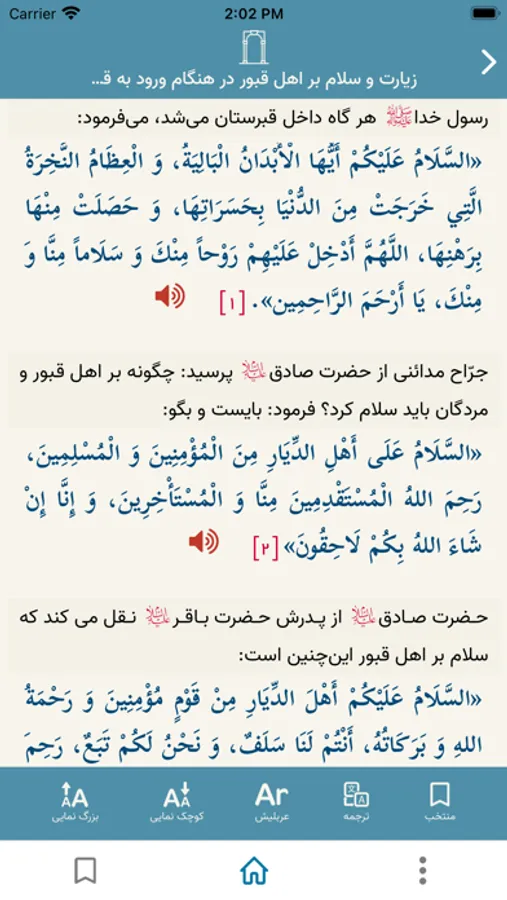 Carrier 2:02 PM
زیارت و سلام بر اهل قبور در هنگام ورود به ق...
رسول خداﷺ هر گاه داخل قبرستان می‌شد، می‌فرمود:
«السَّلَامُ عَلَيْكُمْ أَيُّهَا الْأَبْدَانُ الْبَالِيَةُ، وَ الْعِظَامُ النَّخِرَةُ
الَّتِي خَرَجَتْ مِنَ الدُّنْيَا بِحَسَرَاتِهَا، وَ حَصَلَتْ مِنْهَا
بِرَهْنِهَا، اللَّهُمَّ أَدْخِلْ عَلَيْهِمْ رَوْحاً مِنْكَ وَ سَلَاماً مِنَّا وَ
مِنْكَ، يَا أَرْحَمَ الرَّاحِمِين». [۱]
جرّاح مدائنی از حضرت صادق پرسید: چگونه بر اهل قبور و
مردگان باید سلام کرد؟ فرمود: بایست و بگو:
«السَّلَامُ عَلَى أَهْلِ الدِّيَارِ مِنَ الْمُؤْمِنِينَ وَ الْمُسْلِمِينَ،
رَحِمَ اللهُ الْمُسْتَقْدِمِينَ مِنَّا وَ الْمُسْتَأْخِرِينَ، وَ إِنَّا إِنْ
شَاءَ اللهُ بِكُمْ لَاحِقُونَ» [۲]
حضرت صادق از پدرش حضرت باقر نقل می کند که
سلام بر اهل قبور این‌چنین است:
«السَّلَامُ عَلَيْكُمْ أَهْلَ الدِّيَارِ مِنْ قَوْمٍ مُؤْمِنِينَ وَ رَحْمَةُ
اللهِ وَ بَرَكَاتُهُ، أَنْتُمْ لَنَا سَلَفٌ، وَ نَحْنُ لَكُمْ تَبَعٌ، رَحِمَ
AA AA Ar A
منتخب ترجمه عربلیش کوچک نمایی بزرگ نمایی